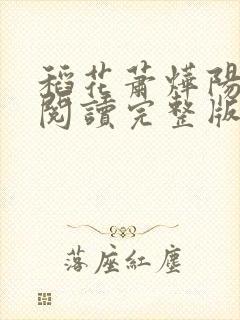 稻花蕭燁陽
閱讀完整版
落座紅塵